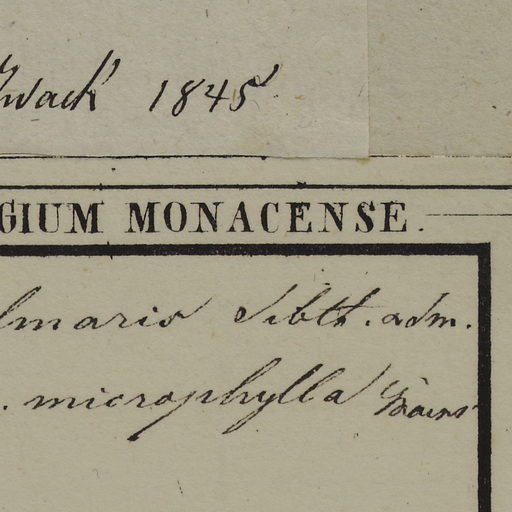 1845
GIUM MONACENSE.
lmaris Sibth. adm.
. microphylla